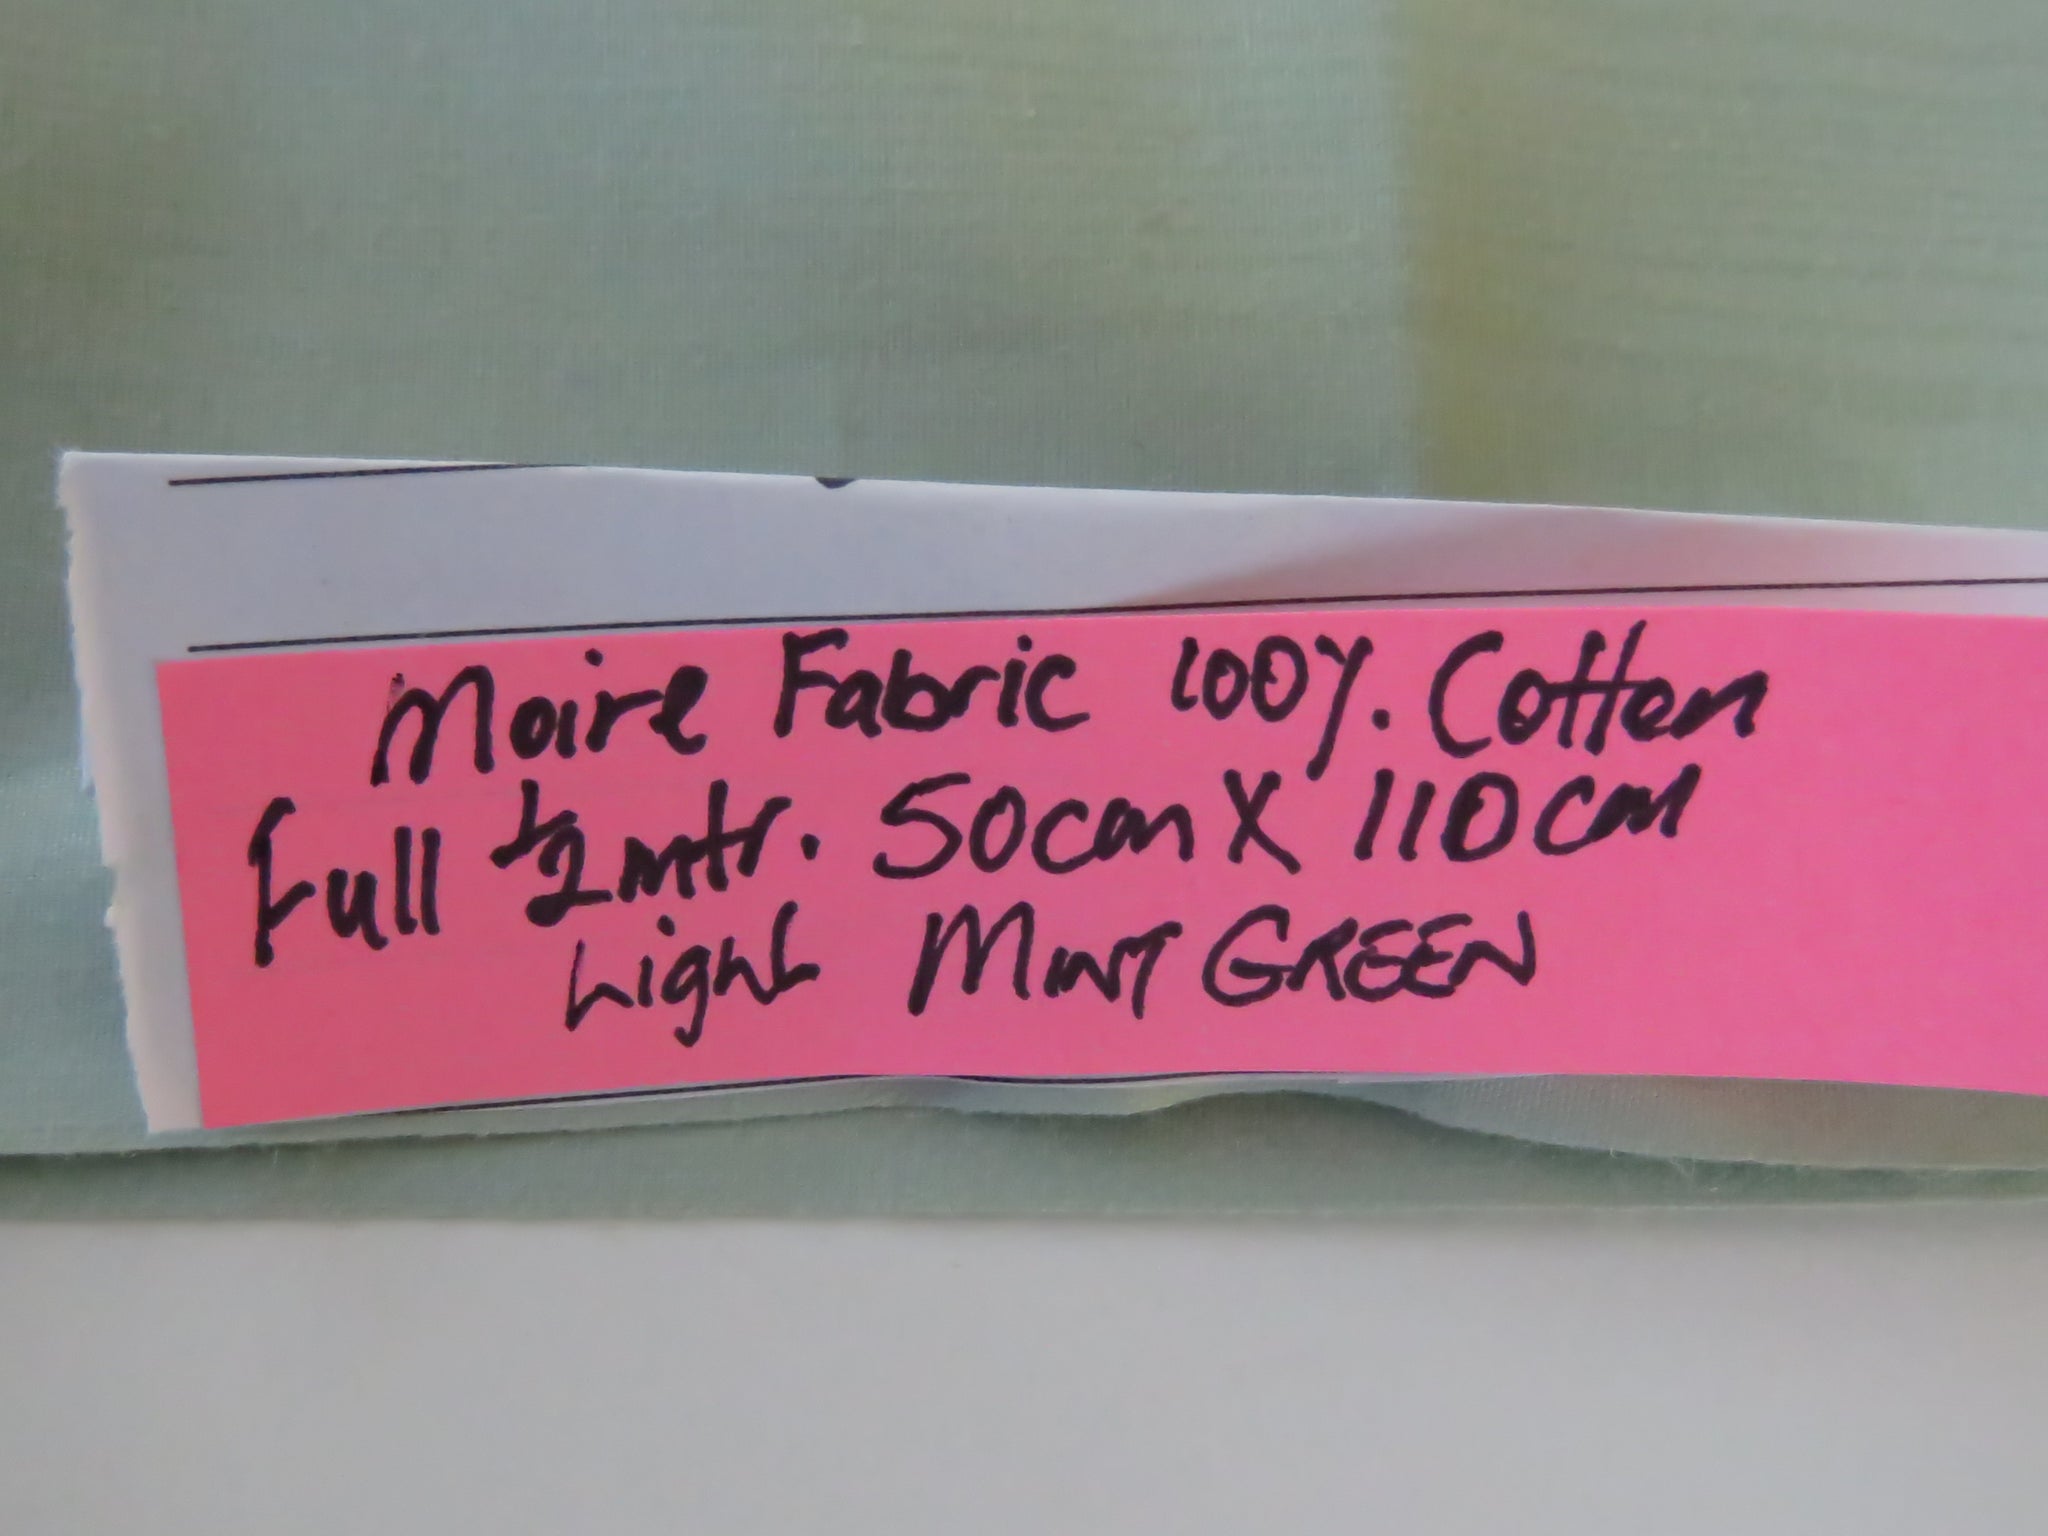 Moire Fabric 100% Cotton
Full 1/2 mtr. 50cm X 110cm
Light MINT GREEN